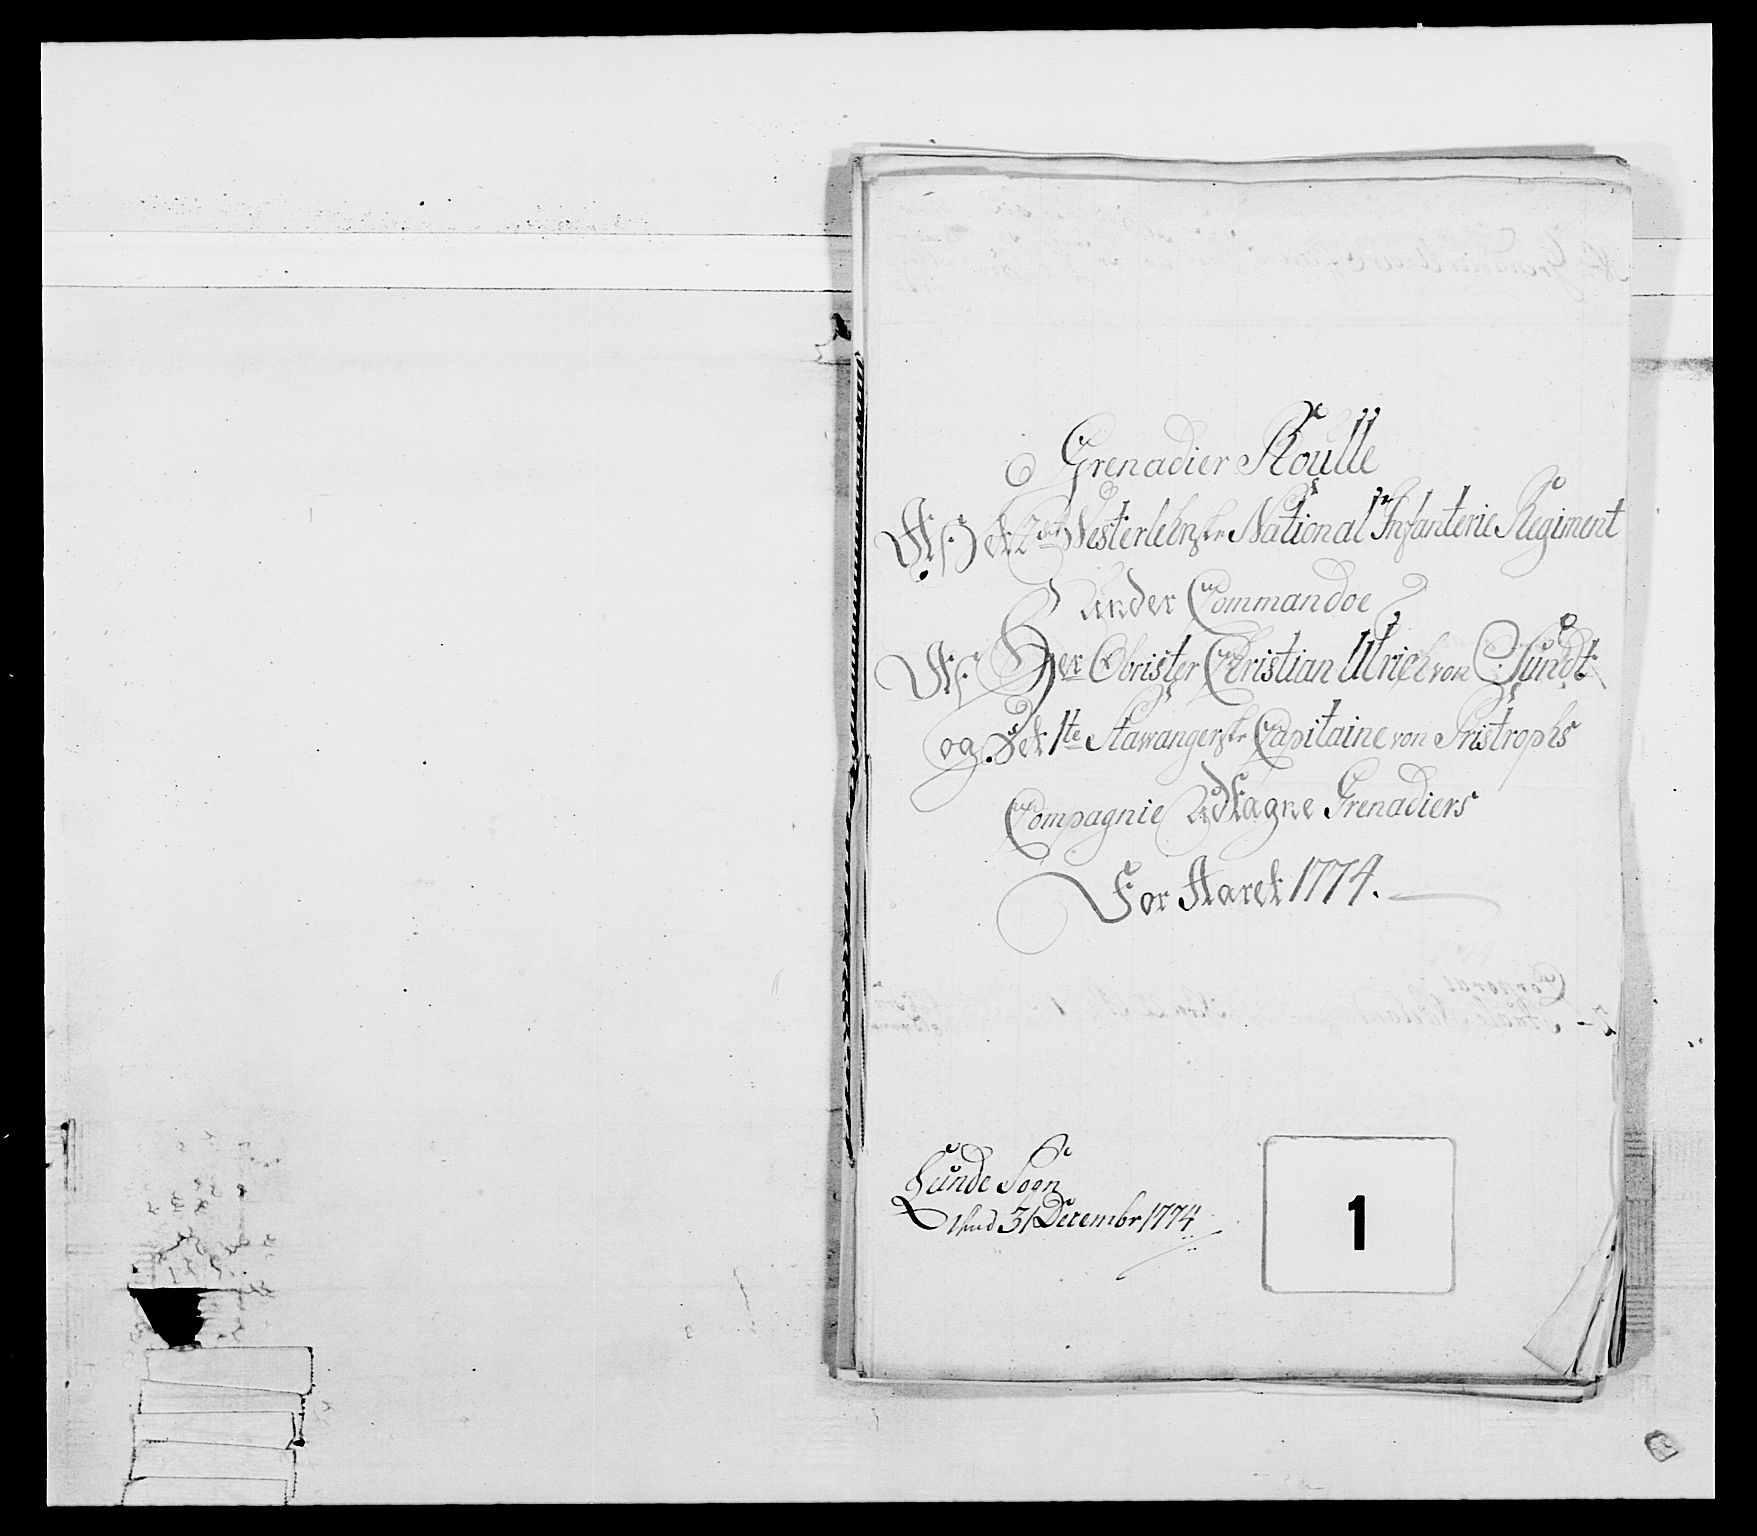 Grenadier Roulle
Af Det 2det Westerlehnske National Infanterie Regiment
under Commandoe
Af Her Obrister Christian Ulrich von Sundt
og Det 1te Stawangerske Capitaine von Fristrophs
Compagnie Udtagne Grenadiers
For Aaret 1774.
Lunde Sogn
31 Decembr 1774
1